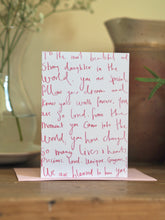 To the most beautiful and
strong daughter in the
world, you are special
follow your dreams and
know you'll walk forever, you
are so loved. from the
moment you came into the
world you have changed
so many lives & hearts
precious, loved, unique, gorgeous
We are blessed to have you